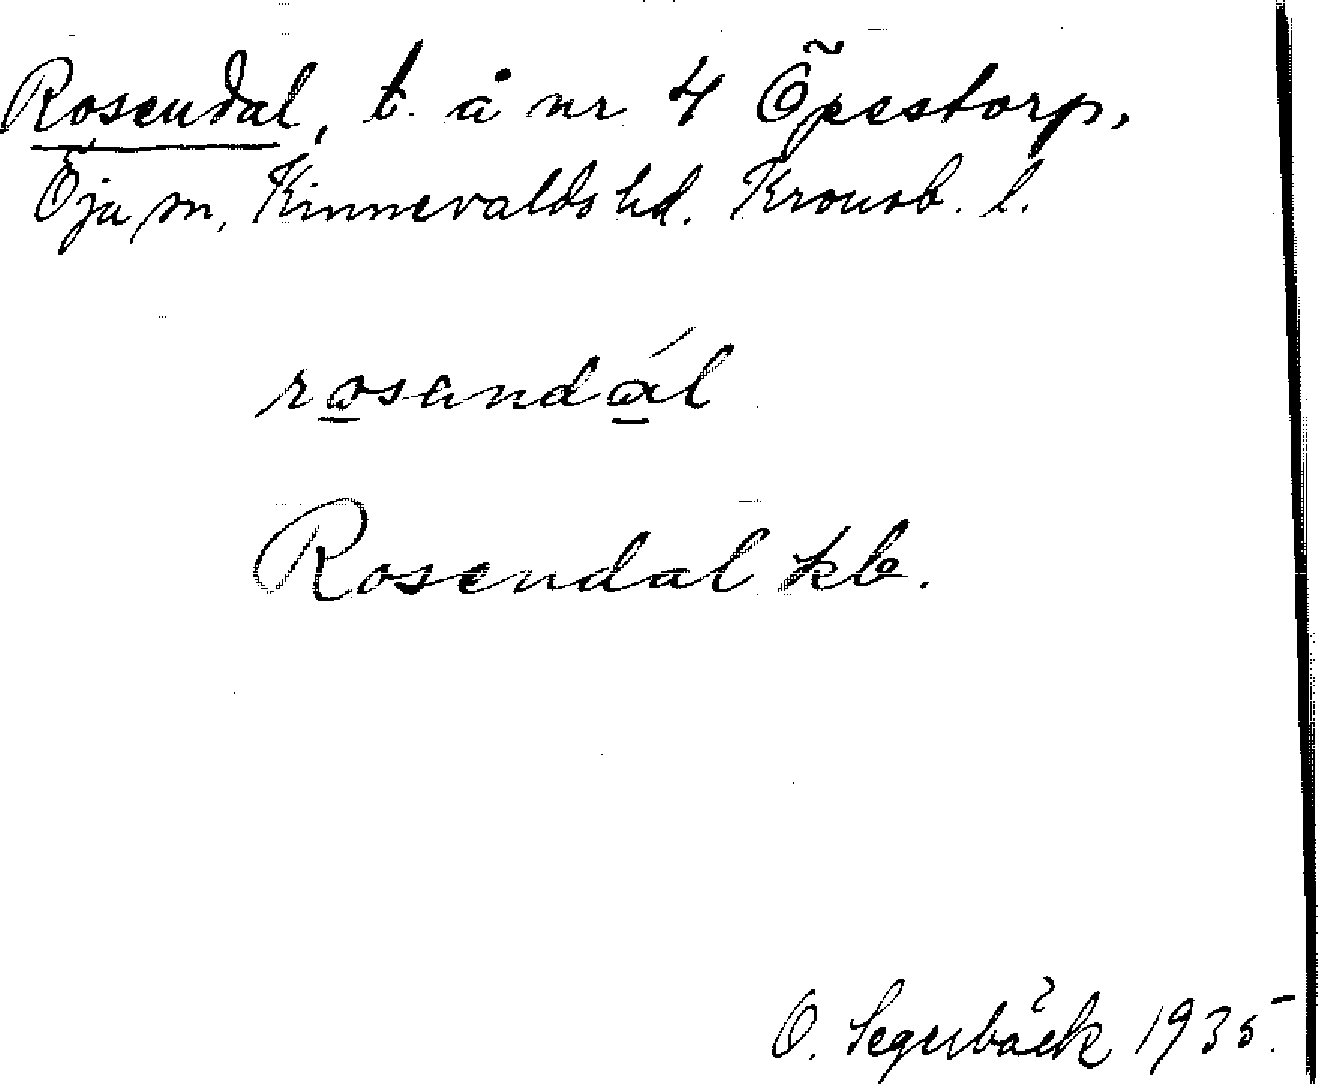 Rosendal, t. å nr 4 Öpestorp,
Öja sn, Kinnevalds hd. Kronob. l.
rosandál
Rosendal kb.
O. Segerbäck 1935.